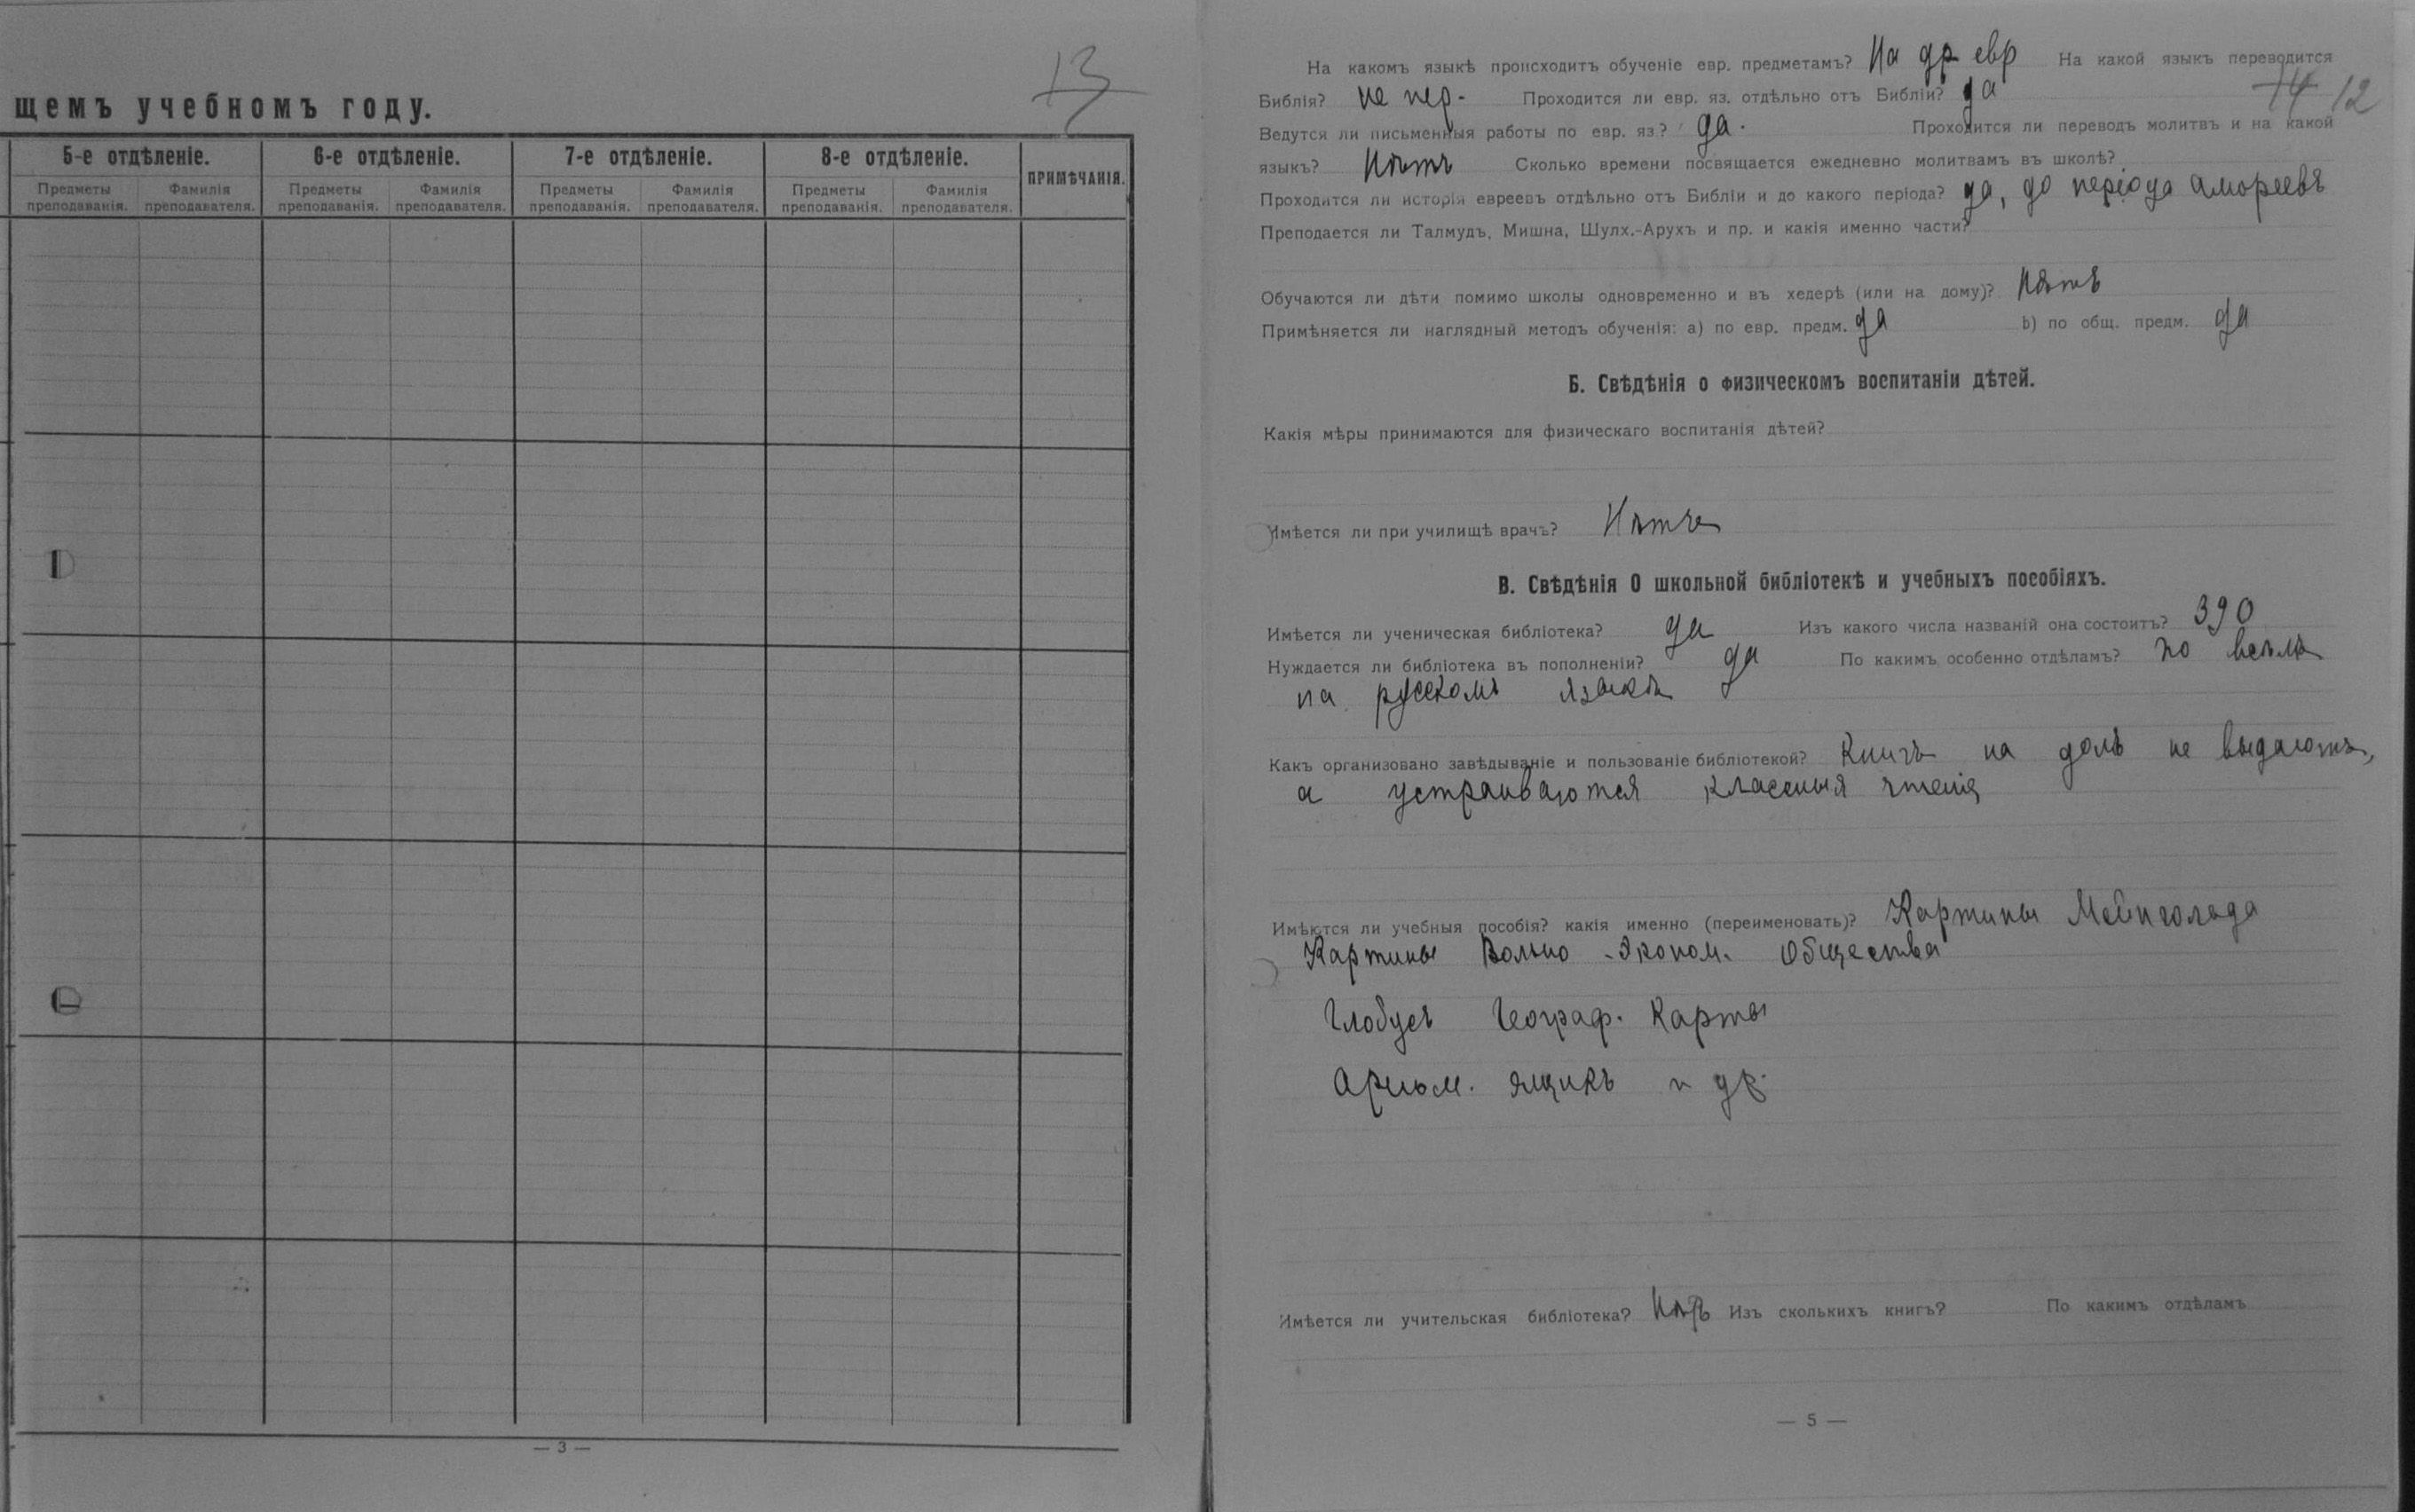 13
щемъ учебномъ году.
5-е отдѣленіе. 6-е отдѣленіе. 7-е отдѣленіе. 8-е отдѣленіе. ПРИМѢЧАНІЯ.
Предметы преподаванія. Фамилія преподавателя. Предметы преподаванія. Фамилія преподавателя. Предметы преподаванія. Фамилія преподавателя. Предметы преподаванія. Фамилія преподавателя.
— 3 —
На какомъ языкѣ происходитъ обученіе евр. предметамъ? На др евр На какой языкъ переводится
14 12
Библія? не пер. Проходится ли евр. яз. отдѣльно отъ Библіи? да
Ведутся ли письменныя работы по евр. яз? да. Проходится ли переводъ молитвъ и на какой
языкъ? Нѣтъ Сколько времени посвящается ежедневно молитвамъ въ школѣ?
Проходится ли исторія евреевъ отдѣльно отъ Библіи и до какого періода? да, до періода амореевъ
Преподается ли Талмудъ, Мишна, Шулх.-Арухъ и пр. и какія именно части?
Обучаются ли дѣти помимо школы одновременно и въ хедерѣ (или на дому)? Нѣтъ
Примѣняется ли наглядный методъ обученія: а) по евр. предм. да b) по общ. предм. да
Б. Свѣдѣнія о физическомъ воспитаніи дѣтей.
Какія мѣры принимаются для физическаго воспитанія дѣтей?
Имѣется ли при училищѣ врачъ? Нѣтъ
В. Свѣдѣнія О школьной библіотекѣ и учебныхъ пособіяхъ.
Имѣется ли ученическая библіотека? да Изъ какого числа названій она состоитъ? 390
Нуждается ли библіотека въ пополненіи? да По какимъ особенно отдѣламъ? по всѣмъ
на русскомъ языкѣ
Какъ организовано завѣдываніе и пользованіе библіотекой? Книгъ на домъ не выдаютъ,
а устраиваются классныя чтенія
Имѣются ли учебныя пособія? какія именно (переименовать)? Картины Мейнгольда
Картины Вольно-Эконом. Общества
Глобусъ Географ. Карты
Ариѳм. ящикъ и др.
Имѣется ли учительская библіотека? Нѣтъ Изъ сколькихъ книгъ? По какимъ отдѣламъ
— 5 —